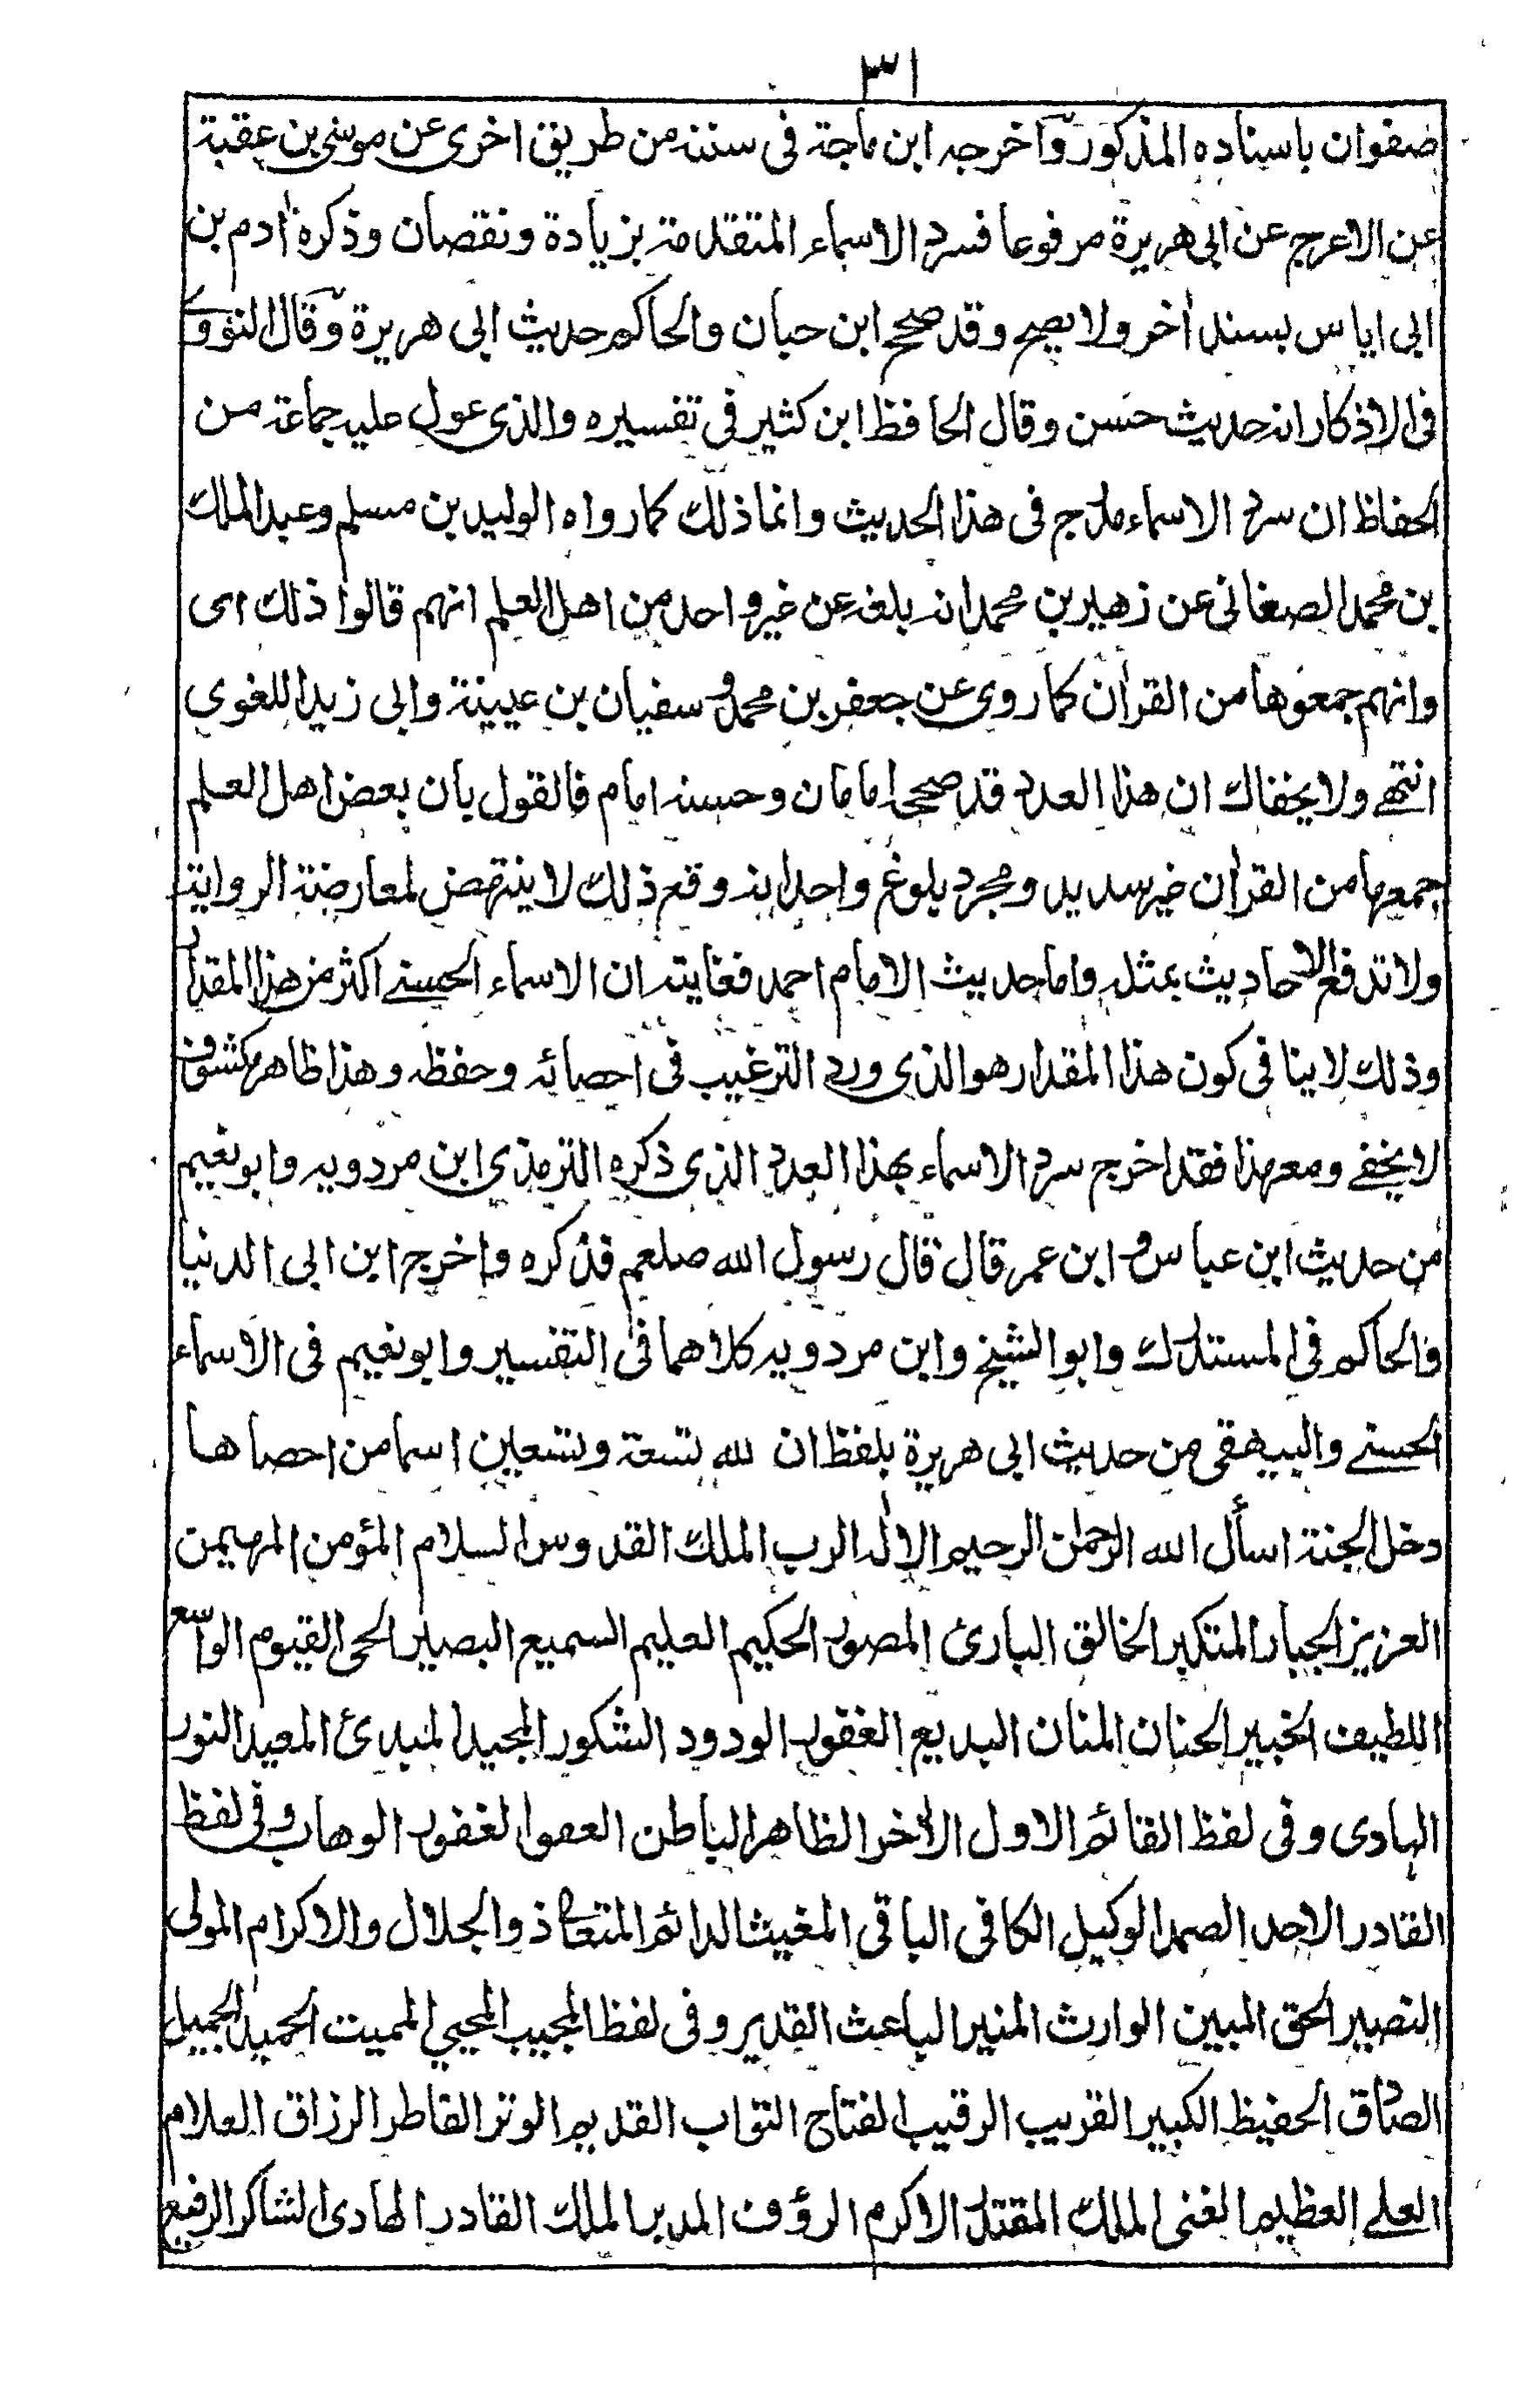 ٣١
صفوان باسناده المذكور وآخرجه ابن ماجة فى سننه من طريق اخرى عن موسى بن عقبة
عن الاعرج عن ابى هريرة مرفوعا فسرد الاسماء المتقدمة بزيادة ونقصان وذكره اٰدم بن
ابى اياس بسند اٰخر ولا يصح وقد صحح ابن حبان والحاكم حديث ابى هريرة وقال النووى
فى الاذكار انه حديث حسن وقال الحافظ ابن كثير فى تفسيره والذى عول عليه جماعة من
الحفاظ ان سرد الاسماء مدرج فى هذا الحديث وانما ذلك كما رواه الوليد بن مسلم وعبد الملك
بن محمد الصغانى عن زهير بن محمد انه بلغه عن غير واحد من اهل العلم انهم قالوا ذلك اى
وانهم جمعوها من القراٰن كما روى عن جعفر بن محمد و سفيان بن عيينة وابى زيد اللغوى
انتهى ولا يخفاك ان هذا العدد قد صححه امامان وحسنه امام فالقول بان بعض اهل العلم
جمعها من القراٰن غير سديد ومجرد بلوغ واحد انه وقع ذلك لا ينتهض لمعارضة الرواية
ولا تدفع الاحاديث بمثله واما حديث الامام احمد فغايته ان الاسماء الحسنے اكثر من هذا المقدار
وذلك لا ينافى كون هذا المقدار هو الذى ورد الترغيب فى احصائه وحفظه وهذا ظاهر مكشوف
لا يخفے ومع هذا فقد اخرج سرد الاسماء بهذا العدد الذى ذكره الترمذى ابن مردويه وابو نعيم
من حديث ابن عباس و ابن عمر قال قال رسول الله صلعم فذكره واخرج ابن ابى الدنيا
والحاكم فى المستدرك وابو الشيخ وابن مردويه كلاهما فى التفسير وابو نعيم فى الاسماء
الحسنے والبيهقى من حديث ابى هريرة بلفظ ان لله تسعة وتسعين اسما من احصاها
دخل الجنة اسأل الله الرحمٰن الرحيم الالٰه الرب الملك القدوس السلام المؤمن المهيمن
العزيز الجبار المتكبر الخالق البارئ المصور الحكيم العليم السميع البصير الحى القيوم الواسع
اللطيف الخبير الحنان المنان البديع الغفور الودود الشكور المجيد المبدئ المعيد النور
الهادى وفى لفظ القائم الاول الاٰخر الظاهر الباطن العفو الغفور الوهاب وفى لفظ
القادر الاحد الصمد الوكيل الكافى الباقى المغيث الدائم المتعال ذو الجلال والاكرام المولى
النصير الحق المبين الوارث المنير الباعث القدير وفى لفظ المجيب المحيي المميت الحميد الجميل
الصادق الحفيظ الكبير القريب الرقيب الفتاح التواب القديم الوتر الفاطر الرزاق العلام
العلے العظيم الغنى الملك المقتدر الاكرم الرؤف المدبر الملك القادر الهادى الشاكر الرفيع